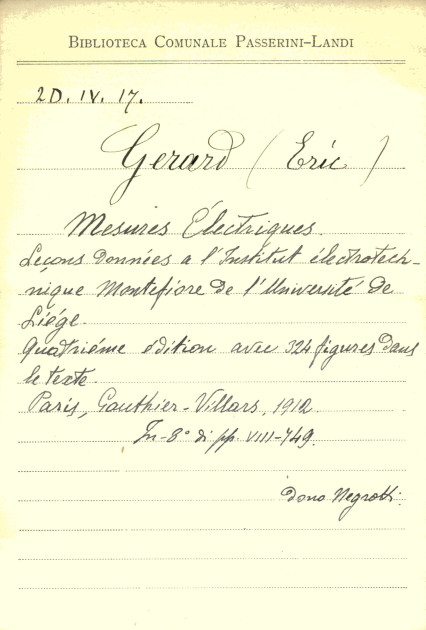 BIBLIOTECA COMUNALE PASSERINI-LANDI
2D. IV. 17.
Gerard (Eric)
Mesures Électriques.
Leçons données a l'Institut électrotech-
nique Montefiore de l'Université de
Liége.
Quatriéme édition avec 324 figures dans
le texte.
Paris, Gauthier-Villars, 1912.
In-8° di pp. VIII-749.
Dono Negrotti.